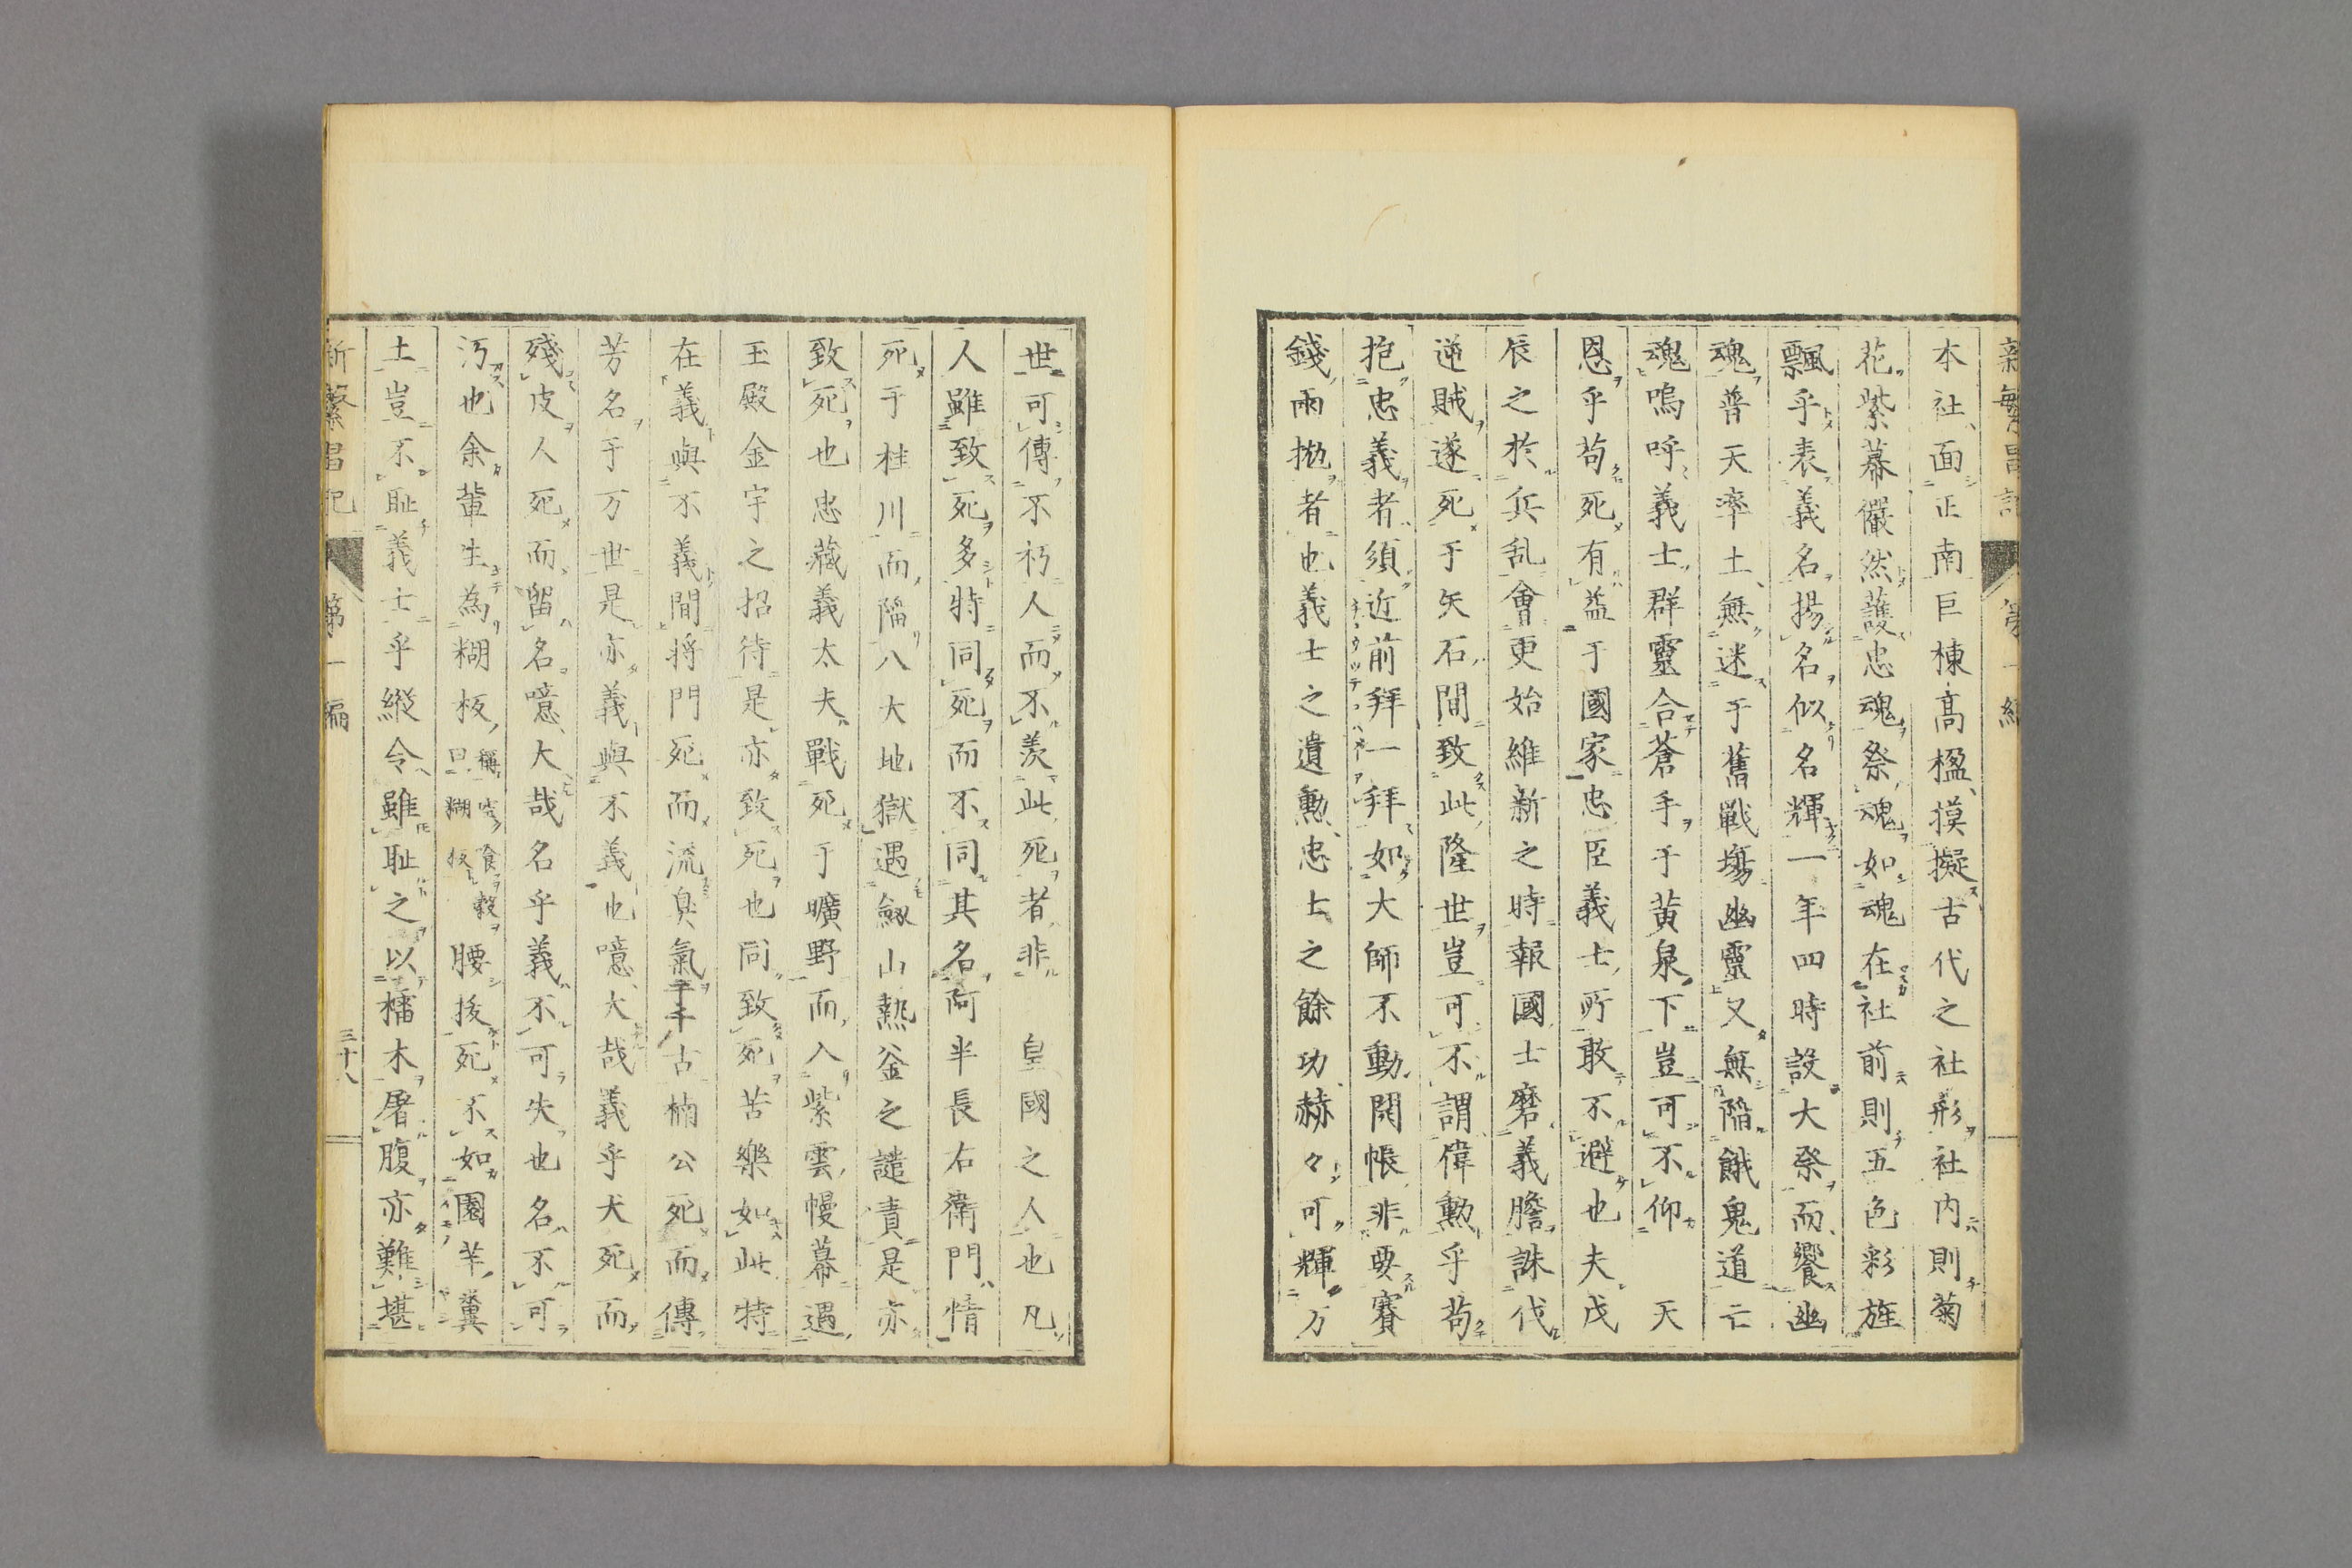 本社面正南巨棟高楹摸擬古代之社形社内則菊
花紫幕儼然護忠魂祭魂如魂在社前則五色彩旌
飄乎表義名揚名似名輝一年四時設大祭而饗幽
魂普天率土無迷于舊戰塲幽靈又無陥餓鬼道亡
魂嗚呼義士群靈合蒼手于黄泉下豈可不仰 天
恩乎苟死有益于國家忠臣義士所敢不避也夫戊
辰之於兵乱會更始維新之時報國士磨義膽誅伐
逆賊遂死于矢石間致此隆世豈可不謂偉勲乎苟
抱忠義者須近前拜一拜如大師不動開帳非要賽
錢雨拋者也義士之遺勲忠士之餘功赫々可輝万
世可傳不朽人而不羨此死者非 皇國之人也凡
人雖致死多特同死而不同其名阿半長右衛門情
死于桂川而陥八大地獄遇劔山熱釜之譴責是亦
致死也忠藏義太夫戰死于曠野而入紫雲幔幕遇
玉殿金宇之招待是亦致死也同致死苦樂如此特
在義與不義間将門死而流臭氣于千古楠公死而傳
芳名于万世是亦義與不義也噫大哉義乎犬死而
殘皮人死而留名噫大哉名乎義不可失也名不可
汚也余輩生為糊板稱空食穀曰糊板腰拔死不如園芋糞
土豈不耻義士乎縱令雖耻之以櫺木屠腹亦難堪
新繁昌記 第一編 三十八